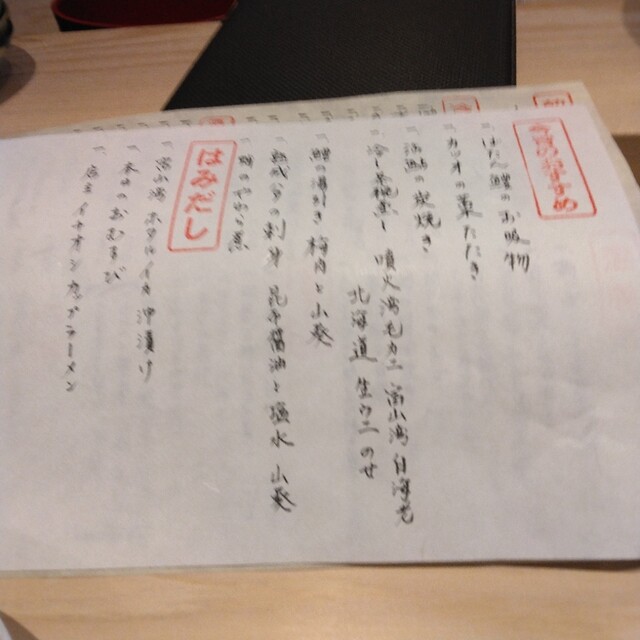 今夜のおすすめ
一 はたと鱧のお吸物
一 カツオの藁たたき
一 活鮎の炭焼き
一 冷し茶碗蒸し 噴火湾毛カニ 富山湾白海老
北海道 生ウニのせ
一 鱧の湯引き 梅肉と山葵
一 熟成魚の刺身 昆布醤油と塩水 山葵
一 蛸のやわらか煮
はみだし
一 富山湾 ホタルイカ 沖漬け
一 本日のおむすび
一 店主イチオシ カップラーメン